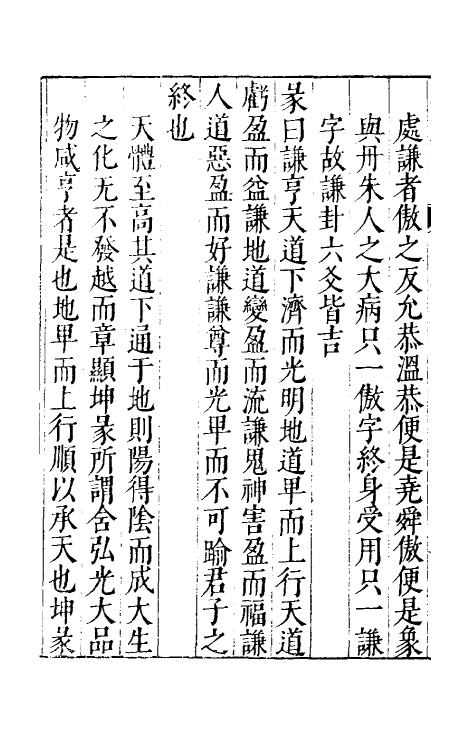 處謙者傲之反允恭溫恭便是堯舜傲便是象
與丹朱人之大病只一傲字終身受用只一謙
字故謙卦六爻皆吉
彖曰謙亨天道下濟而光明地道卑而上行天道
虧盈而益謙地道變盈而流謙鬼神害盈而福謙
人道惡盈而好謙謙尊而光卑而不可踰君子之
終也
天體至高其道下通于地則陽得陰而成大生
之化无不發越而章顯坤彖所謂含弘光大品
物咸亨者是也地卑而上行順以承天也坤彖